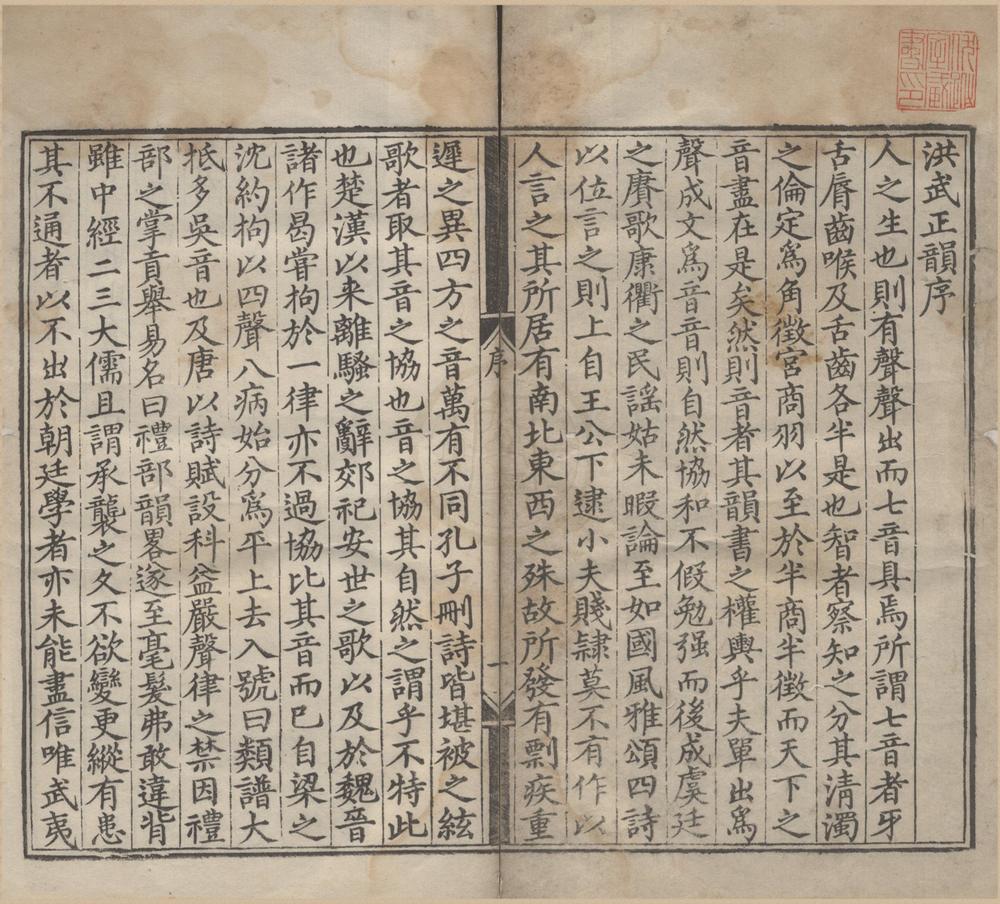 洪武正韻序
人之生也則有聲聲出而七音具焉所謂七音者牙
舌脣齒喉及舌齒各半是也智者察知之分其清濁
之倫定爲角徵宮商羽以至於半商半徵而天下之
音盡在是矣然則音者其韻書之權輿乎夫單出爲
聲成文爲音音則自然協和不假勉强而後成虞廷
之賡歌康衢之民謡姑未暇論至如國風雅頌四詩
以位言之則上自王公下逮小夫賤隷莫不有作以
人言之其所居有南北東西之殊故所發有剽疾重
序
一
遲之異四方之音萬有不同孔子刪詩皆堪被之絃
歌者取其音之協也音之協其自然之謂乎不特此
也楚漢以来離騷之辭郊祀安世之歌以及於魏晉
諸作曷嘗拘於一律亦不過協比其音而已自梁之
沈約拘以四聲八病始分爲平上去入號曰類譜大
抵多吳音也及唐以詩賦設科益嚴聲律之禁因禮
部之掌貢舉易名曰禮部韻畧遂至毫髮弗敢違背
雖中經二三大儒且謂承襲之久不欲變更縱有患
其不通者以不出於朝廷學者亦未能盡信唯武夷